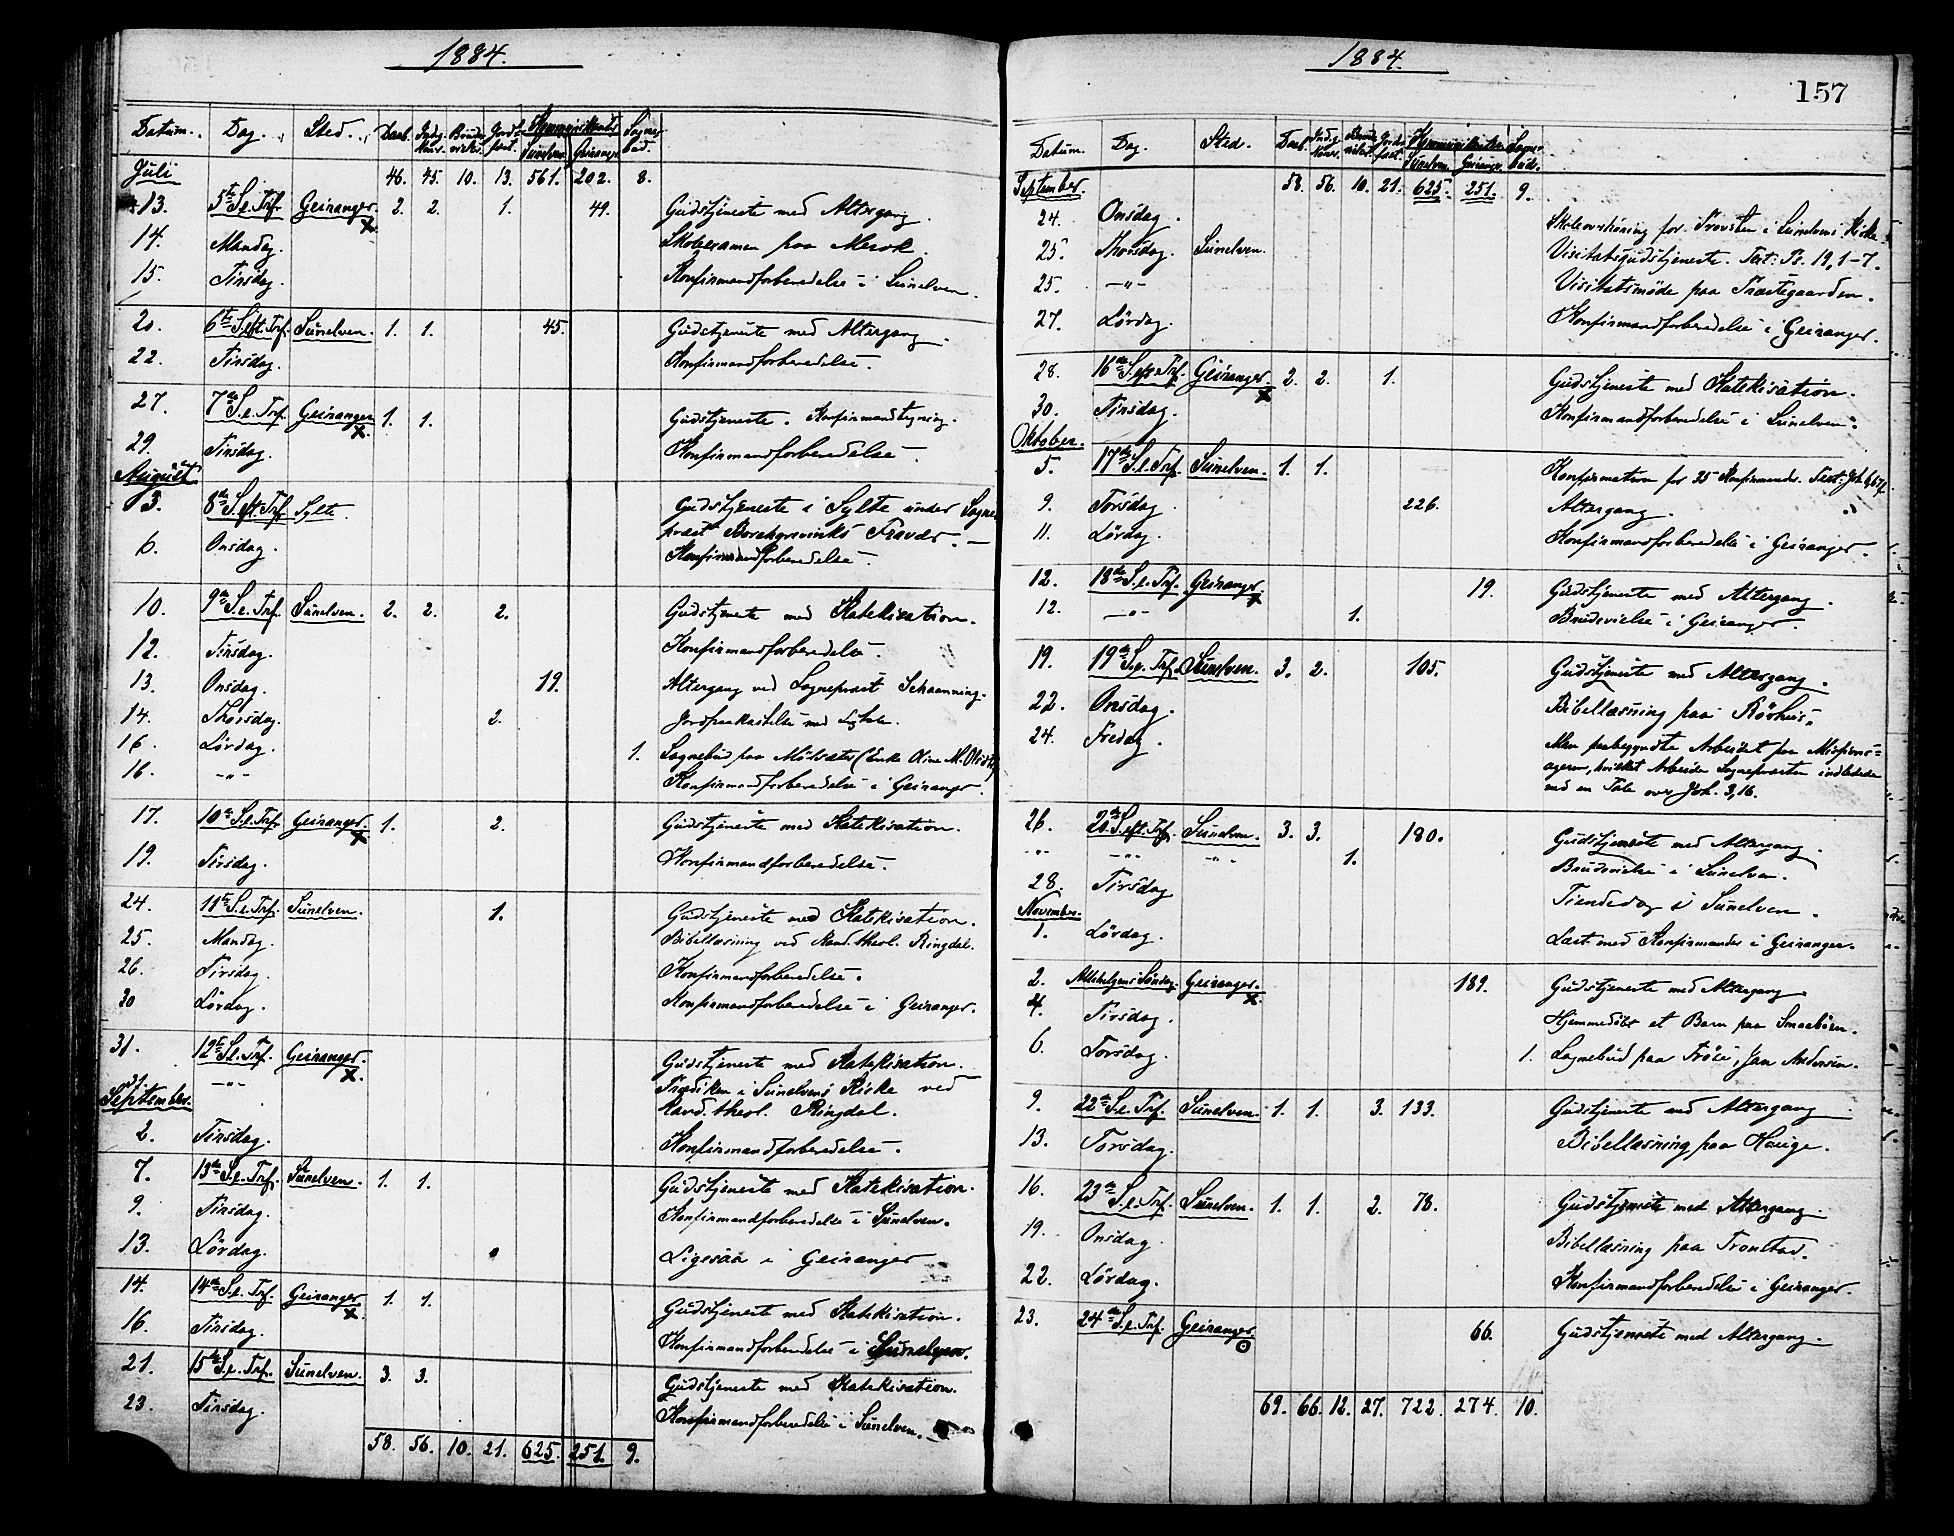 1884.
Datum. Dag. Sted. Daab. Indg. Kone. Brude vielse. Jordf. Kommunikanter Sunelven. Geiranger. Sogne bud.
Juli 46. 45. 10. 13. 561. 202. 8.
13. 5te S.e.Trf. Geiranger. 2. 2. 1. 49. Gudstjeneste med Altergang.
14. Mandag. Skoleexamen paa Merok.
15. Tirsdag. Konfirmandforberedelse i Sunelven.
20. 6te S.eft.Trf. Sunelven. 1. 1. 45. Gudstjeneste med Altergang.
22. Tirsdag. Konfirmandforberedelse.
27. 7de S.e.Trf. Geiranger x. 1. 1. Gudstjeneste. Konfirmandtegning.
29. Tirsdag. Konfirmandforberedelse.
August
3. 8de S.eft.Trf. Sylte. Gudstjeneste i Sylte under Sogne
præst Borchgrevinks Fravær.
6. Onsdag. Konfirmandforberedelse.
10. 9de S.e.Trf. Sunelven. 2. 2. 2. Gudstjeneste med Katekisation.
12. Tirsdag. Konfirmandforberedelse.
13. Onsdag. 19. Altergang ved Sognepræst Schanning.
14. Thorsdag. 2. Jordpaakastelse med Ligtale.
16. Lørdag. 1. Sognebud paa Molsæter (Enke Oline M.
16. -"- Konfirmandforberedelse i Geiranger.
17. 10de S.e.Trf. Geiranger. x 1. 2. Gudstjeneste med Katekisation.
19. Tirsdag. Konfirmandforberedelse.
24. 11te S.e.Trf. Sunelven. 1. Gudstjeneste med Katekisation.
25. Mandag. Bibellæsning ved Kand. theol. Ringdal.
26. Tirsdag. Konfirmandforberedelse.
30 Lørdag. Konfirmandforberedelse i Geiranger.
31. 12te S.e.Trf. Geiranger. x. Gudstjeneste med Katekisation.
31. -"- Prædiken i Sunelvens Kirke ved
Kand. theol. Ringdal.
September.
2. Tirsdag. Konfirmandforberedelse.
7. 13de S.e.Trf. Sunelven. 1. 1. Gudstjeneste med Katekisation.
9. Tirsdag. Konfirmandforberedelse i Sunelven.
13. Lørdag. Ligesaa i Geiranger
14. 14de S.e.Trf. Geiranger x. 1. 1. Gudstjeneste med Katekisation.
16. Tirsdag. Konfirmandforberedelse i Sunelven.
21. 15de S.e.Trf. Sunelven. 3. 3. Gudstjeneste med Katekisation.
23. Tirsdag. Konfirmandforberedelse i Sunelven.
58. 56. 10. 21. 625. 251. 9.
1884.
157
Datum. Dag. Sted. Daab. Indg. Kone. Brude vielse. Jordf. Kommunikanter Sunelven. Geiranger. Sogne bud.
September. 58. 56. 10. 21. 625. 251. 9.
24. Onsdag. Skoleovhøring for Provsten i Sunelvens Kirke.
25. Thorsdag. Sunelven. Visitatsgudstjeneste. Text: Ps. 19, 1-7.
25. -"- Visitatsmøde paa Præstegaarden.
27. Lørdag. Konfirmandforberedelse i Geiranger.
28. 16de S.eft.Trf. Geiranger. x 2. 2. 1. Gudstjeneste med Katekisation.
30. Tirsdag. Konfirmandforberedelse i Sunelven.
Oktober.
5. 17de S.e.Trf. Sunelven. 1. 1. Konfirmation for 35 Konfirmander. Text: Joh. 6,67f.
9. Torsdag. 226. Altergang.
11. Lørdag. Konfirmandforberedelse i Geiranger.
12. 18de S.e.Trf. Geiranger. x 19. Gudstjeneste med Altergang.
12. -"- 1. Brudevielse i Geiranger.
19. 19de S.e.Trf. Sunelven. 3. 2. 105. Gudstjeneste med Altergang.
22. Onsdag. Bibellæsning paa Rørhus.
24. Fredag. Men paabegyndte Arbeidet paa Missions-
ageren, hvilket Arbeide Sognepræsten indledede
med en Tale over Joh. 3,16.
26. 20de S.eft.Trf. Sunelven. 3. 3. 180. Gudstjeneste med Altergang.
-"- -"- -"- 1. Brudevielse i Sunelven.
28. Tirsdag Tiendedag i Sunelven.
November.
1. Lørdag. Læst med Konfirmander i Geiranger.
2. Allehelgens Søndag. Geiranger. x. 189. Gudstjeneste med Altergang.
4. Tirsdag. Hjemmedøbt et Barn paa Smaabøen.
6. Torsdag. 1. Sognebud paa Frøie, Jan Andersen.
9. 22de S.e.Trf. Sunelven. 1. 1. 3. 133. Gudstjeneste med Altergang
13. Torsdag. Bibellæsning paa Hauge.
16. 23de S.e.Trf. Sunelven. 1. 1. 2. 78. Gudstjeneste med Altergang.
19. Onsdag. Bibellæsning paa Tronstad.
22. Lørdag. Konfirmandforberedelse i Geiranger.
23. 24de S.e.Trf. Geiranger. 66. Gudstjeneste med Altergang.
69. 66. 12. 27. 722. 274. 10.